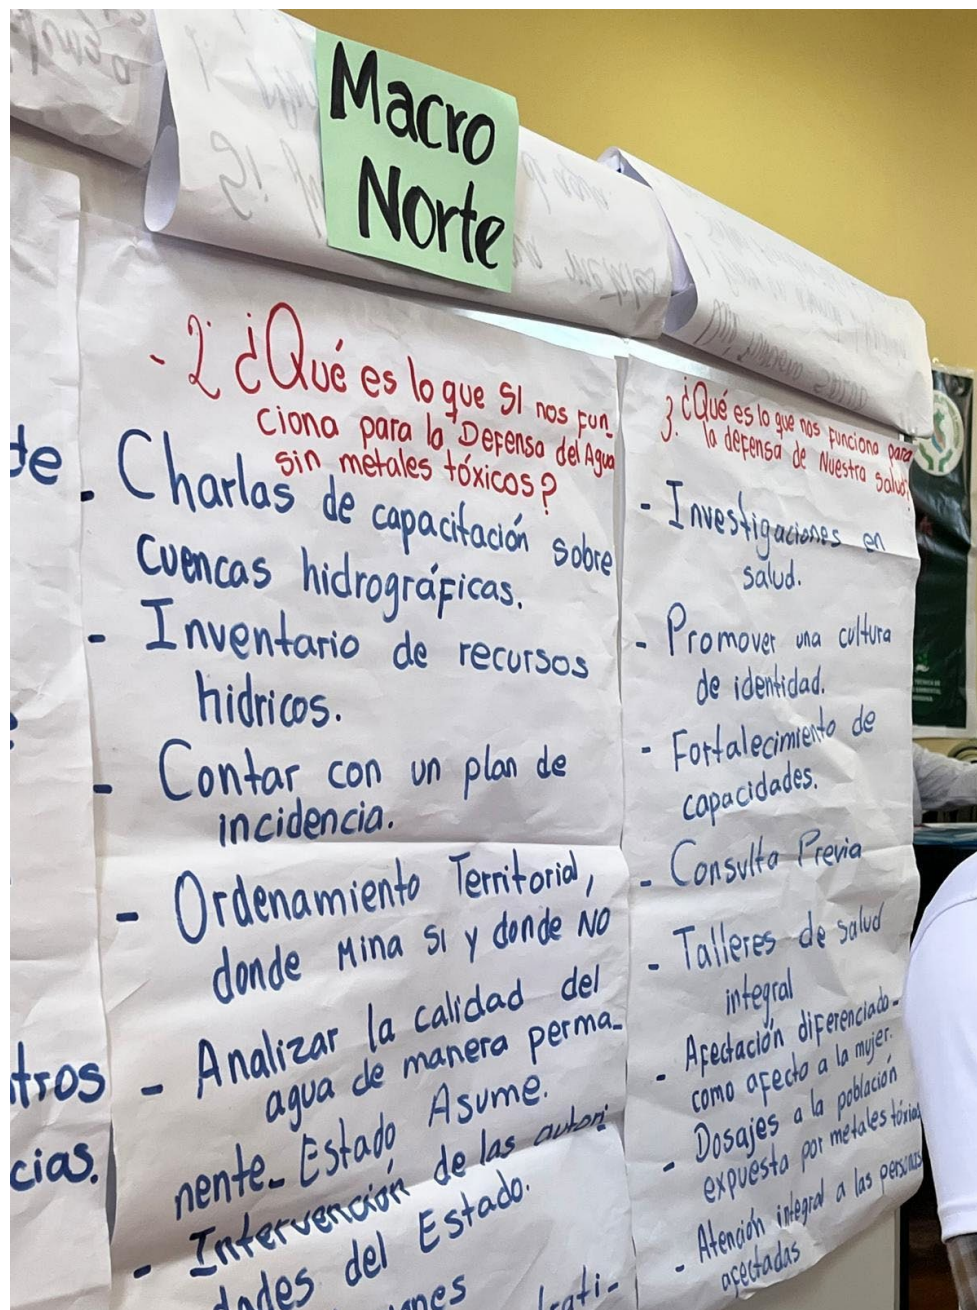 Macro
Norte
- 2. ¿Qué es lo que SI nos fun_
ciona para la Defensa del Agua
sin metales tóxicos?
- Charlas de capacitación sobre
cuencas hidrográficas.
- Inventario de recursos
hídricos.
- Contar con un plan de
incidencia.
- Ordenamiento Territorial,
donde Mina SI y donde NO
- Analizar la calidad del
agua de manera perma_
nente_ Estado Asume.
- Intervención de las autori
dades del Estado.
3. ¿Qué es lo que nos funciona para
la defensa de Nuestra salud?
- Investigaciones en
salud.
- Promover una cultura
de identidad.
- Fortalecimiento de
capacidades.
- Consulta Previa
- Talleres de salud
integral
- Afectación diferenciado_
como afecto a la mujer.
- Dosajes a la población
expuesta por metales tóxicos
- Atención integral a las personas
afectadas
te
tros
cias.